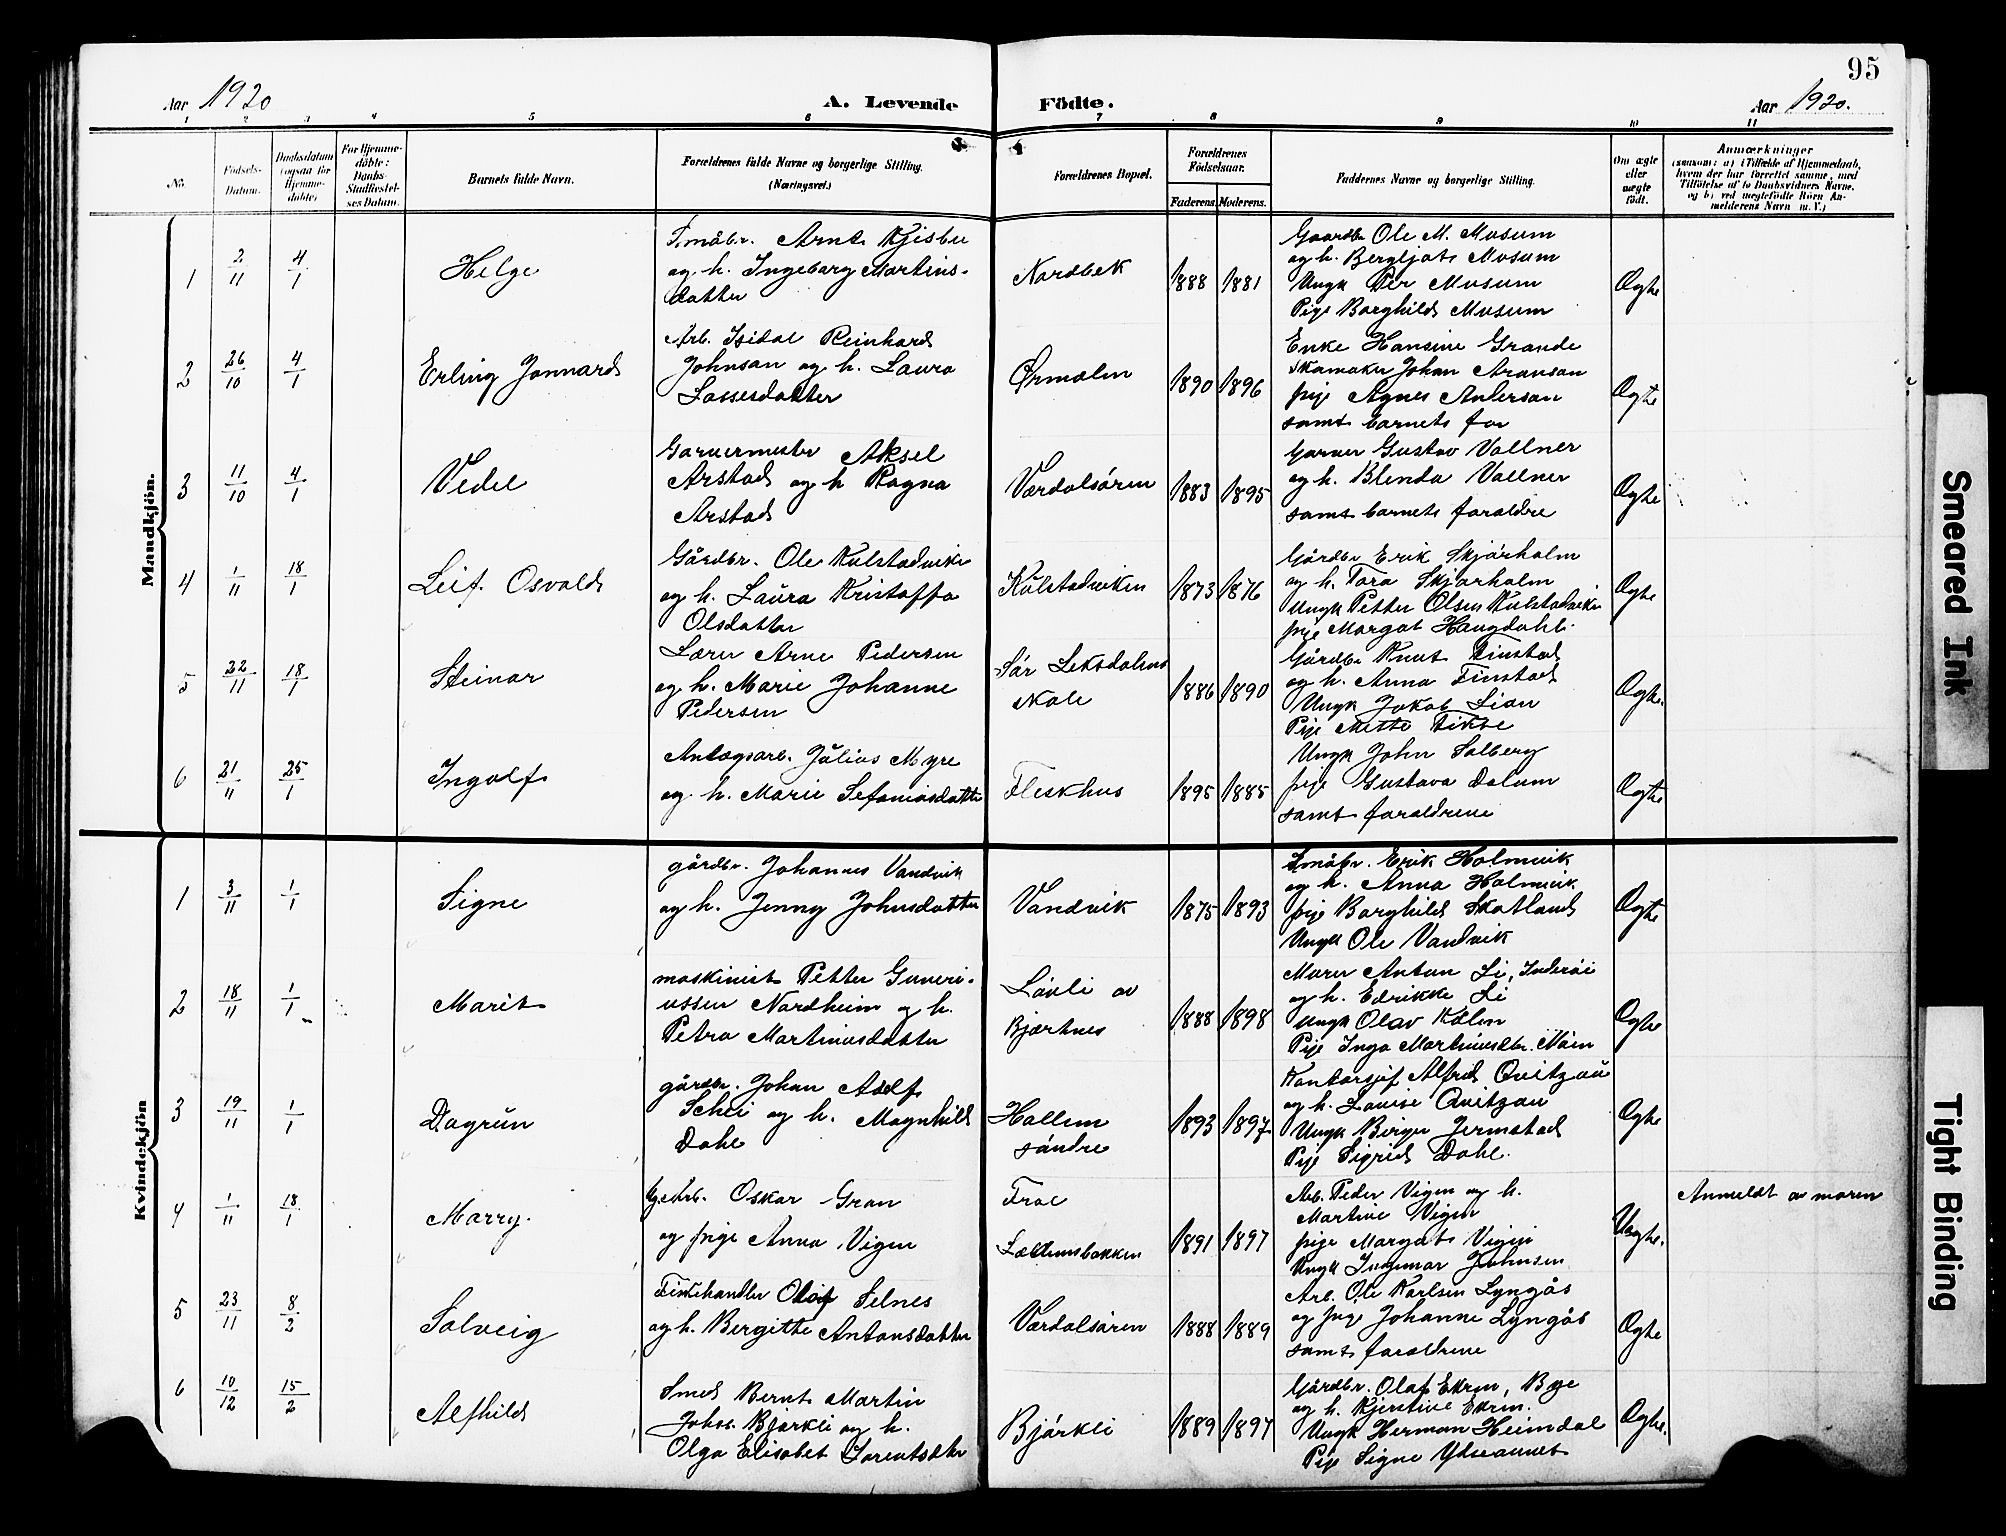 95
Aar 1920
A. Levende Födte.
Aar 1920.
1 2 3 4 5 6 7 8 9 10 11
No.
Födsels-
Datum.
Daabsdatum
(ogsaa for
Hjemme-
döbte)
For Hjemme-
döbte:
Daabs-
Stadfæstel-
ses Datum.
Barnets fulde Navn.
Forældrenes fulde Navne og borgerlige Stilling.
(Næringsvei.)
Forældrenes Bopæl.
Forældrenes
Födselsaar.
Faderens. Moderens.
Faddernes Navne og borgerlige Stilling.
Om ægte
eller
uægte
födt.
Anmærkninger
(saasom: a) i Tilfælde af Hjemmedaab,
hvem der har forrettet samme, med
Tilföielse af to Daabsvidners Navne,
og b) ved uægtefödte Börn An-
melderens Navn m. V.)
Mandkjön.
1
2/11
4/1
Helge
Småbr. Arne Kjesbu
og h. Ingeborg Martins-
datter
Nordbek
1888 1881
Gaardbr Ole M. Musum
og h. Bergljot Musum
Ungk Per Musum
Pige Borghild Musum
Ægte
2
26/10
4/1
Erling Jonnard
Arb. Isidal Reinhard
Johnsan og h. Laura
Lassesdatter
Ørmelen
1890 1896
Enke Hansine Grande
Skomaker Johan Aronsan
pige Agnes Andersan
samt barnets far
Ægte
3
11/10
4/1
Vedel
Garvermester Aksel
Arstad og h Ragna
Arstad
Værdalsören
1883 1895
Garver Gustav Vollner
og h. Blenda Vollner
samt barnets foraldre
Ægte
4
1/11
18/1
Leif Osvald
Gårdbr. Ole Kulstadvike
og h. Laura Kristoffa
Olsdatter
Kulstadviken
1873 1876
Gårdbr Erik Skjörholm
og h. Tora Skjörholm
Ungk Petter Olsen Kulstadvike
pige Margot Haugdahl.
Ægte
5
22/11
18/1
Steinar
Lærer Arne Pedersen
og h. Marie Johanne
Pedersen
Sör Leksdalens
skole
1886 1890
Gårdbr Knut Finstad
og h. Anna Finstad
Ungk Jakob Lian
Pige Mette Tikse
Ægte.
6
21/11
25/1
Ingolf
Anlægsarb. Julius Myre
og h. Marie Sefaniasdatter
Fleskhus
1895 1885
Ungk John Solberg
pige Gustava Dalum
samt foraldrene
Ægte
Kvindekjön
1
3/11
1/1
Signe
gårdbr. Johannes Vandvik
og h. Jenny Johnsdatter
Vandvik
1875 1893
Småbr. Erik Holmvik
og h. Anna Holmvik
pige Borghild Skotland
Ungk Ole Vandvik
Ægte
2
18/11
1/1
Marit
maskinist Petter Guneri-
ussen Nordheim og h.
Petra Martinusdatter
Lövli av
Bjartnes
1888 1898
Murer Anton Li, Inderöi
og h. Edrikke Li
Ungk Olav Kålen
Pige Inga Martinusdtr. Nåin
Ægte
3
19/11
1/1
Dagrun
gårdbr. Johan Adolf
Schei og h. Magnhild
Dahl
Hallem
söndre
1893 1897
Kontorsjef Alfred Qvitzau
og h. Louise Qvitzau
Ungk Birger Jermstad
Pige Sigrid Dahl.
Ægte
4
1/11
18/1
Marry.
Oskar Gran
og pige Anna Vigen
Frol
1891 1897
Arb. Peder Vigen og h.
Martine Vigen
pige Margot Vigen
Ungk Ingemar Johnsen
Uægte.
Anmeldt av moren
5
23/11
8/2
Solveig
Fiskehandler Olaf Selnes
og h. Bergitte Antonsdatter
Værdalsören
1888 1889
Arb. Ole Karlsen Lyngås
og pige Johanne Lyngås
samt foraldrene
Ægte
6
10/12
15/2
Alfhild
Smed Bernt Martin
Johs. Björkli og h.
Olga Elisabet Lorentsdtr
Björkli
1889 1897
Gårdbr. Olaf Ekren, Bye
og h. Kjerstine Ekren.
Ungk Herman Heimdal
Pige Signe Ydseaunet
Ægte.
Smeared Ink
Tight Binding